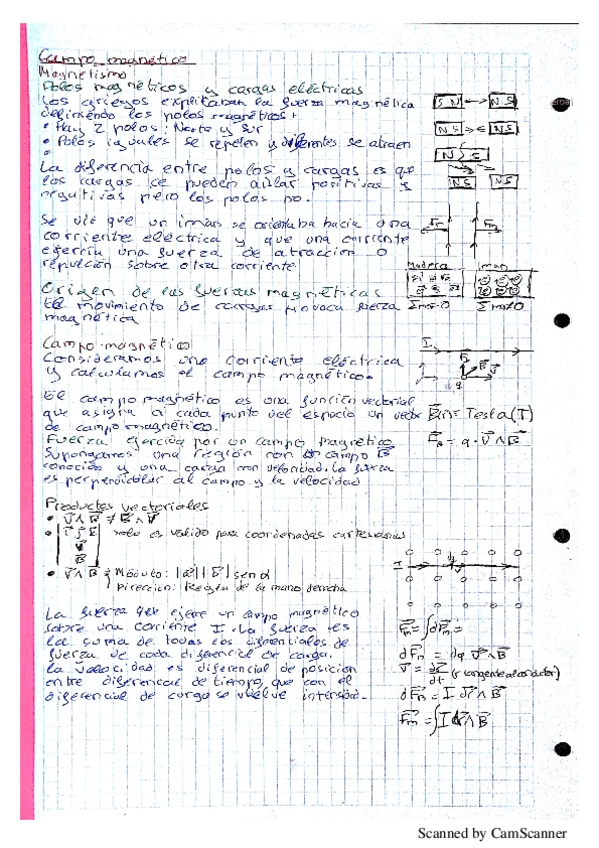 Campo magnético
Magnetismo
Polos magnéticos y cargas eléctricas
Los griegos explicaban la fuerza magnética
definiendo los polos magnéticos:
• Hay 2 polos: Norte y Sur
• Polos iguales se repelen y diferentes se atraen
S N N S
N S N S
N S
N S N S
La diferencia entre polos y cargas es que
las cargas se pueden aislar positivas y
negativas pero los polos no.
Se vio que un imán se orientaba hacia una
corriente eléctrica y que una corriente
ejercía una fuerza de atracción o
repulsión sobre otra corriente.
Madera Iman
Origen de las fuerzas magnéticas
El movimiento de cargas provoca fuerza
magnética
Campo magnético
Consideramos una corriente eléctrica
y calculamos el campo magnético.
I
El campo magnético es una función vectorial
que asigna a cada punto del espacio un vector B(r) = Tesla (T)
de campo magnético.
Fuerza ejercida por un campo magnético
F = q · v ∧ B
Supongamos una región con un campo B
conocido y una carga con velocidad. La fuerza
es perpendicular al campo y la velocidad
Productos vectoriales
• v ∧ B ≠ B ∧ v
• solo es valido para coordenadas cartesianas
• v ∧ B Módulo: |a||b| sen α
Direccion: Regla de la mano derecha
I
La fuerza que ejerce un campo magnético
sobre una corriente I. La fuerza es
la suma de todas los diferenciales de
fuerza de cada diferencial de carga.
la velocidad es diferencial de posicion
entre diferencial de tiempo, que con el
diferencial de carga se vuelve intensidad.
Fm = ∫dFm =
dFm = dq v ∧ B
v = dr/dt (r tangente al conductor)
dFm = I dr ∧ B
Fm = ∫I dr ∧ B
Scanned by CamScanner